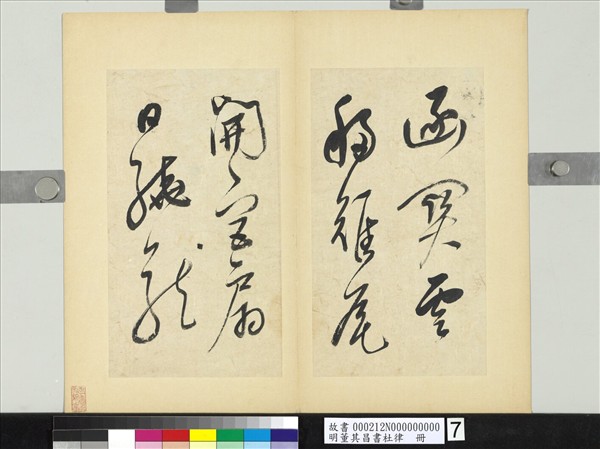 函關雲
移雉尾
開宮扇
日繞龍
故書 000212N000000000
明董其昌書杜律 冊
7